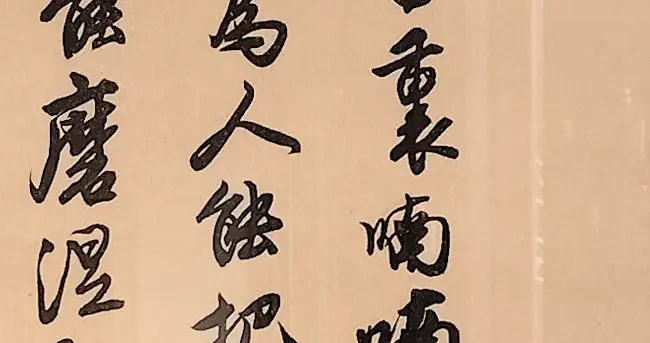 裏喃喃
為人能把
能磨涅